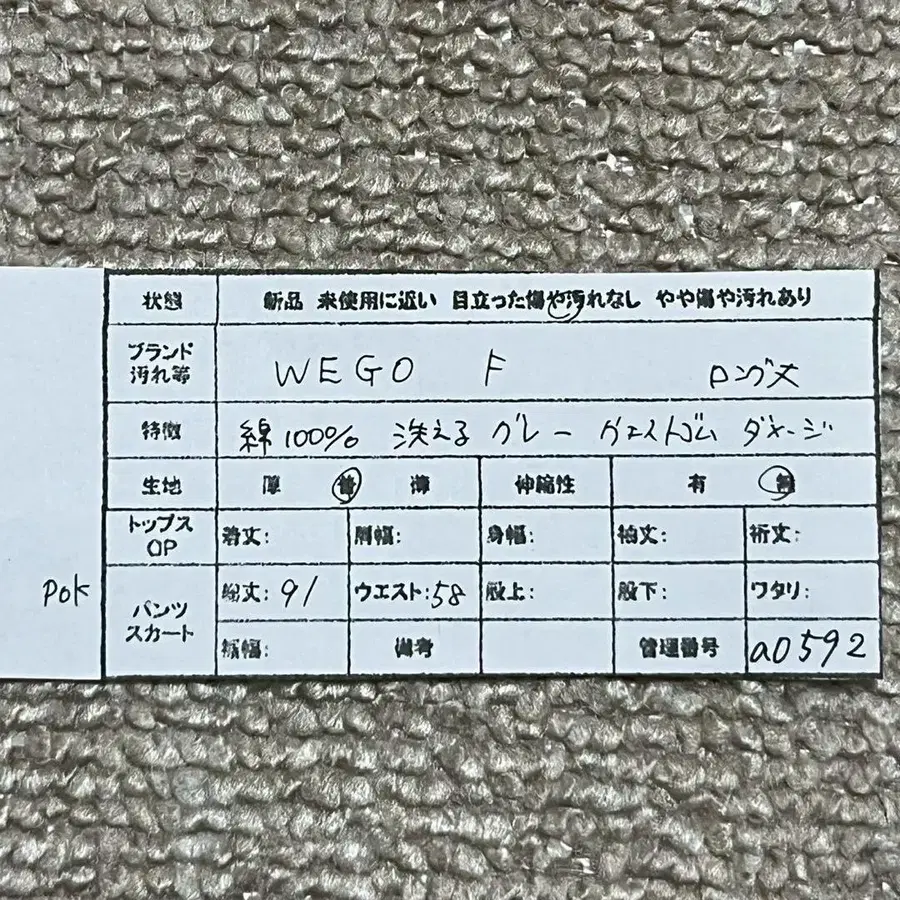 状態 新品 未使用に近い 目立った傷や汚れなし やや傷や汚れあり
ブランド
汚れ等
WEGO F ロング丈
特徴 綿100% 洗える グレー ウエストゴム ダメージ
生地 厚 普 薄 伸縮性 有 無
トップス
OP
着丈: 肩幅: 身幅: 袖丈: 裄丈:
Pok
パンツ
スカート
総丈:91 ウエスト:58 股上: 股下: ワタリ:
裾幅: 備考 管理番号 a0592